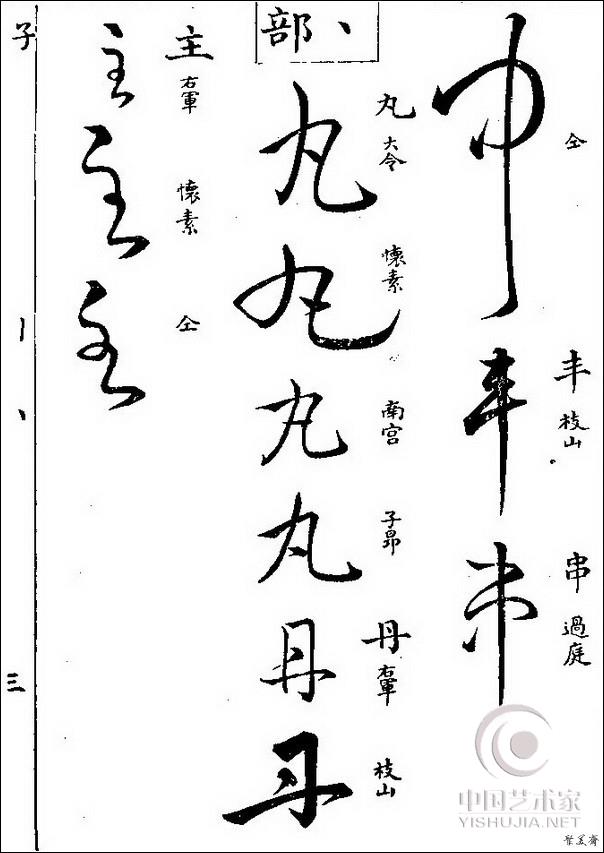 中 仝
丰 枝山
串 過庭
丶部
丸 大令
丸 懷素
丸 南宮
丸 子昂
丹 右軍
丹 枝山
主 右軍
主 懷素
主 仝
子 丨 丶 三
中国艺术家
YISHUJIA.NET